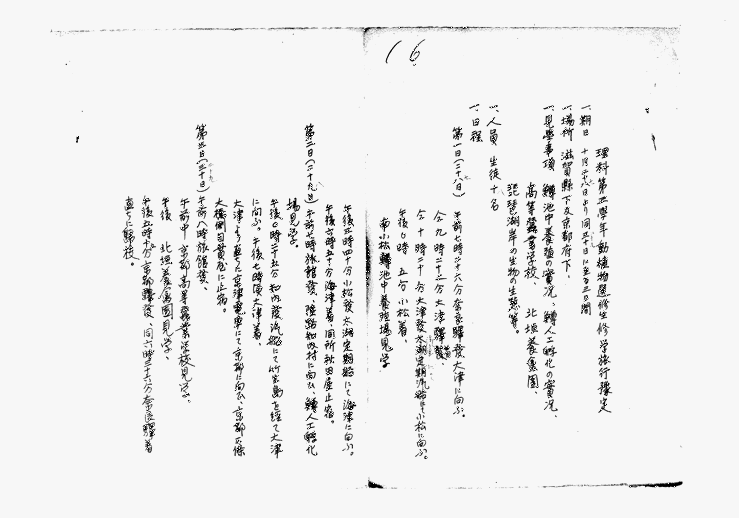 16
理科第五学年動植物選修生修学旅行豫定
一、期日 十月二十八日より同三十日に至る三日間
一、場所 滋賀縣下及京都府下、
一、見學事項 鱒池中養殖の實況、鱒人工孵化の實況、
高等蠶業学校、 北垣養魚園、
琵琶湖岸の生物の生態等。
一、人員 生徒十名
一、日程
第一日(二十八日) 午前七時二十六分奈良驛發、大津に向ふ。
仝九時二十二分 大津驛着
仝十時二十分 大津發太湖定期汽船にて小松に向ふ。
午後〇時 五分 小松着、
南小松鱒池中養殖場見学
午後五時四十分小松發太湖定期船にて海津に向ふ。
午後六時五十分海津着、同所秋田屋止宿。
第二日(二十九日) 午前七時旅館發、陸路知内村に向ひ、鱒人工孵化
場見学。
午後〇時二十五分知内發汽船にて竹生島を経て大津
に向ふ。午後七時頃大津着、
大津より直ちに京津電車にて京都に向ひ、京都五條
大橋側 に止宿。
第三日(三十日) 午前八時旅館發、
午前中 京都高等蠶業学校見学。
午後 北垣養魚園見学、
午後五時十分京都驛發、同六時三十六分奈良驛着
直ちに歸校。